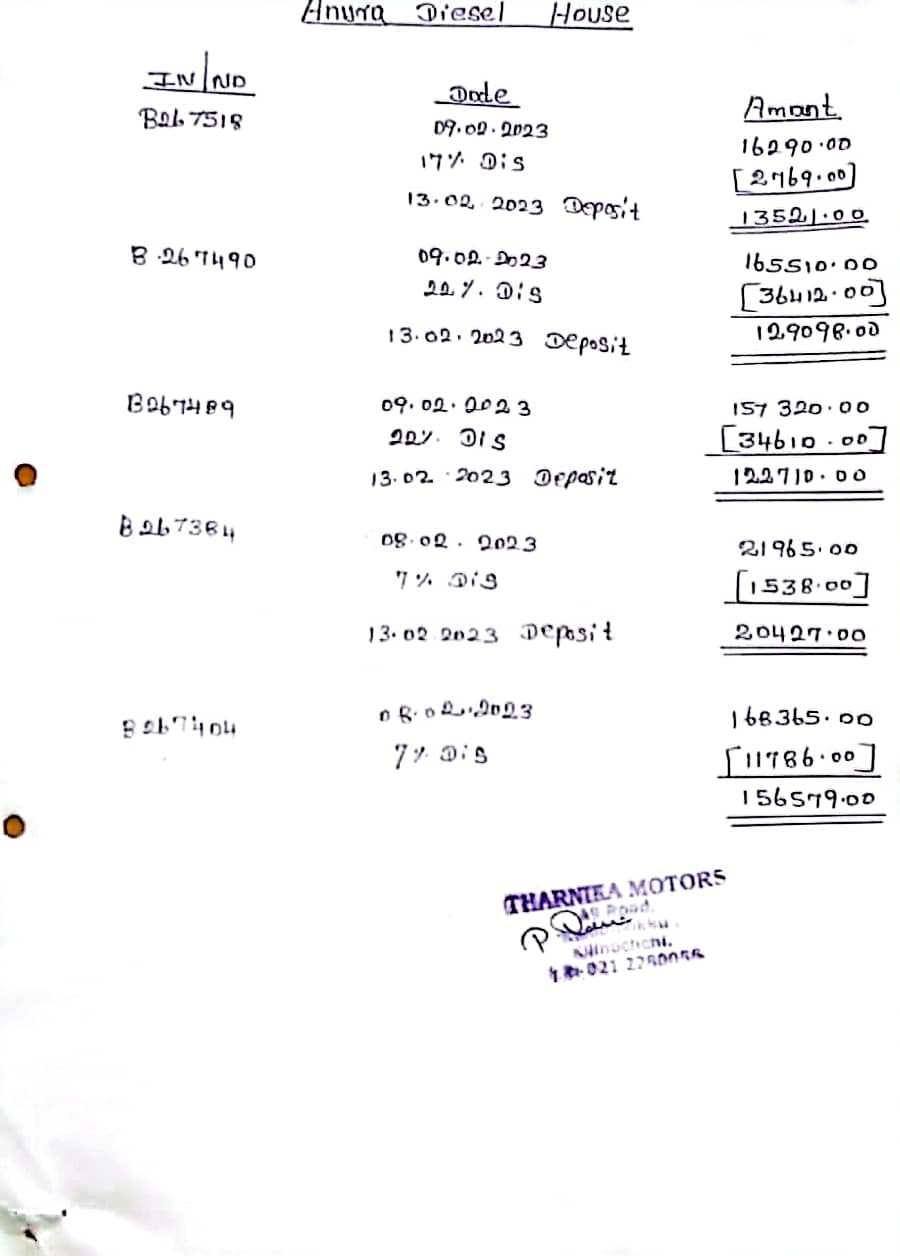 Anura Diesel House
IN/NO Date Amant
B267518 09.02.2023 16290.00
17% Dis [2769.00]
13.02.2023 Deposit 13521.00
B.267490 09.02.2023 165510.00
22%. Dis [36412.00]
13.02.2023 Deposit 129098.00
B267489 09.02.2023 157320.00
22%. DIS [34610.00]
13.02.2023 Deposit 122710.00
B267384 08.02.2023 21965.00
7% Dis [1538.00]
13.02.2023 Deposit 20427.00
B267404 08.02.2023 168365.00
7% Dis [11786.00]
156579.00
THARNIKA MOTORS
A9 Road,
Kilinochchi.
021